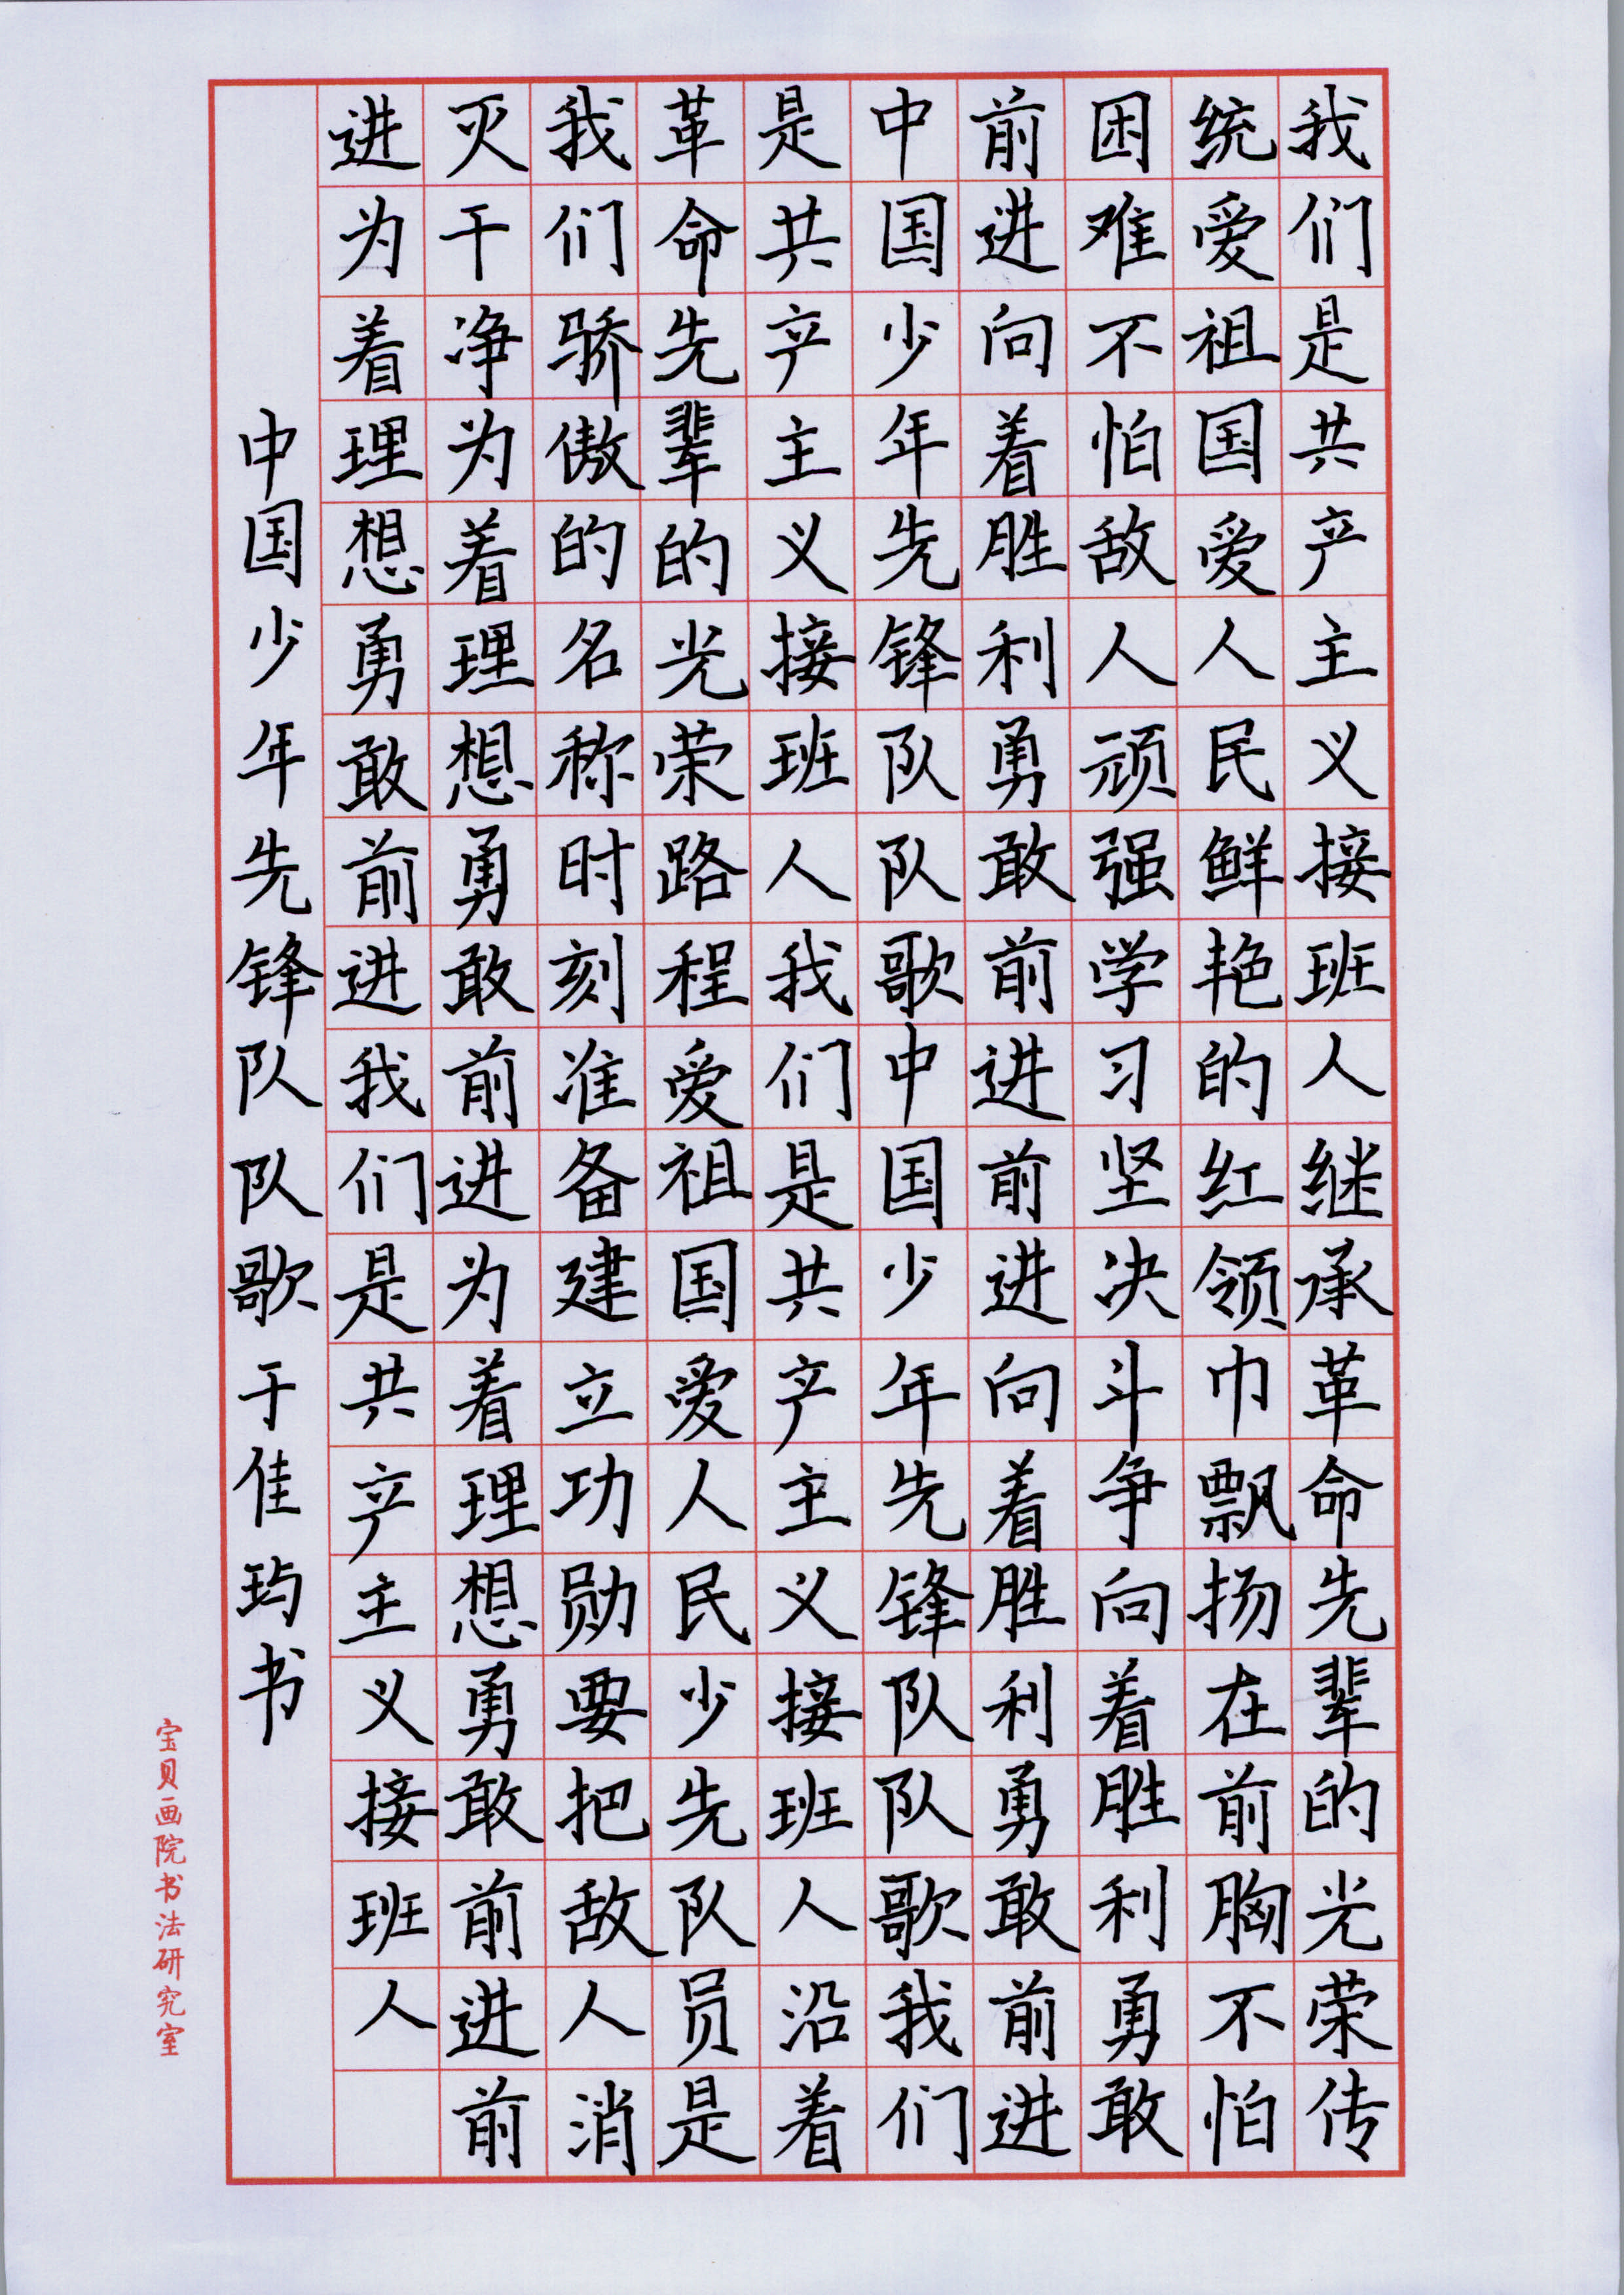 我们是共产主义接班人继承革命先辈的光荣传
统爱祖国爱人民鲜艳的红领巾飘扬在前胸不怕
困难不怕敌人顽强学习坚决斗争向着胜利勇敢
前进向着胜利勇敢前进前进向着胜利勇敢前进
中国少年先锋队队歌中国少年先锋队队歌我们
是共产主义接班人我们是共产主义接班人沿着
革命先辈的光荣路程爱祖国爱人民少先队员是
我们骄傲的名称时刻准备建立功勋要把敌人消
灭干净为着理想勇敢前进为着理想勇敢前进前
进为着理想勇敢前进我们是共产主义接班人
中国少年先锋队队歌于佳玙书
宝贝画院书法研究室